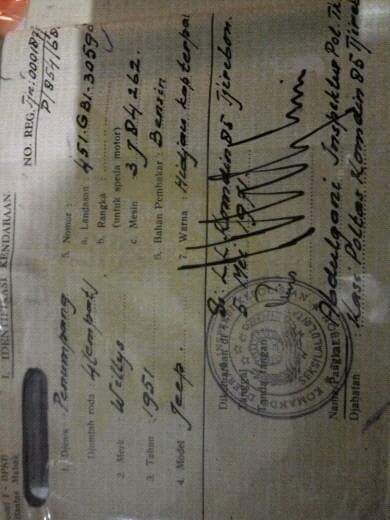 I. IDENTIFIKASI KENDARAAN
NO. REG.
1. Djenis : Penumpang
Djumlah roda : 4 (empat)
2. Merk : Willys
3. Tahun : 1951.
4. Model : Jeep.
5. Nomor :
a. Landasan : 451-GB1-30590
b. Rangka :
(untuk speda motor)
c. Mesin : 3784262.
6. Bahan Pembakar : Bensin
7. Warna : Hidjau kap terpal
Dikeluarkan di : Komdin 85 Tjirebon.
Tanggal : 5 Mei 1971.
Tanda tangan
Nama/Pangkat : Abdulgani Inspektur Pol. Tk
Djabatan : Kasi Polkas Komdin 85 Tjireb